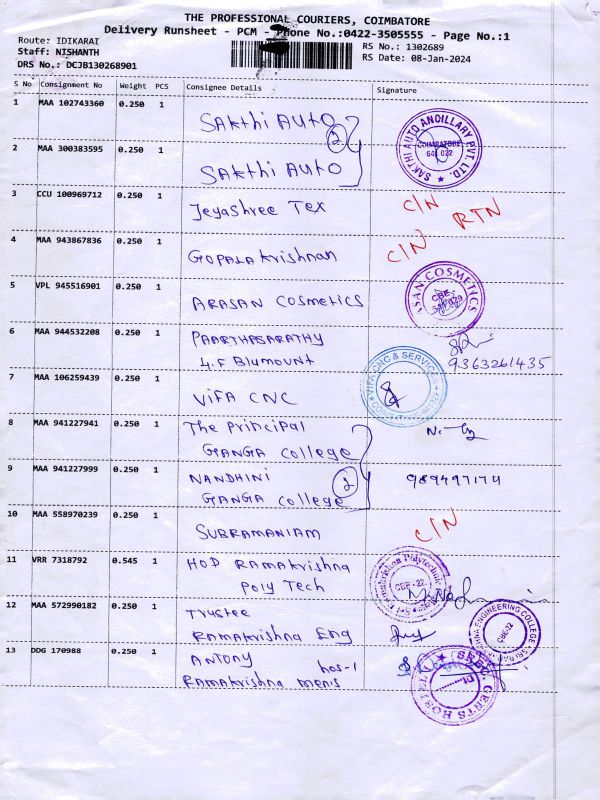 THE PROFESSIONAL COURIERS, COIMBATORE
Delivery Runsheet - PCM - Phone No.:0422-3505555 - Page No.:1
Route: IDIKARAI
RS No.: 1302689
Staff: NISHANTH
RS Date: 08-Jan-2024
DRS No.: DCJB130268901
S No Consignment No Weight PCS Consignee Details Signature
1 MAA 102743360 0.250 1 Sakthi Auto
2 MAA 300383595 0.250 1 Sakthi Auto
2
SAKTHI AUTO ANCILLARY PVT. LTD.
COIMBATORE
641 022
3 CCU 100969712 0.250 1 Jeyashree Tex C/N RTN
4 MAA 943867836 0.250 1 Gopala krishnan C/N
5 VPL 945516901 0.250 1 ARASAN Cosmetics
SAN COSMETICS
6 MAA 944532208 0.250 1 PAARTHASARATHY
4.F Blumount 9363261435
7 MAA 106259439 0.250 1 ViFA CNC
VIFA CNC & SERVICES
8 MAA 941227941 0.250 1 The Principal
GANGA College
9 MAA 941227999 0.250 1 NANDHINI
GANGA College
2
989497174
10 MAA 558970239 0.250 1 SUBRAMANIAM C/N
11 VRR 7318792 0.545 1 HOD RAMAkrishna
Poly Tech
CBE-22
12 MAA 572990182 0.250 1 Trustee
RAMAkrishna Eng
ENGINEERING COLLEGE
CBE-22
13 DDG 170988 0.250 1 ANTONY hos-1
RAMAkrishna men's
GENTS HOSTEL